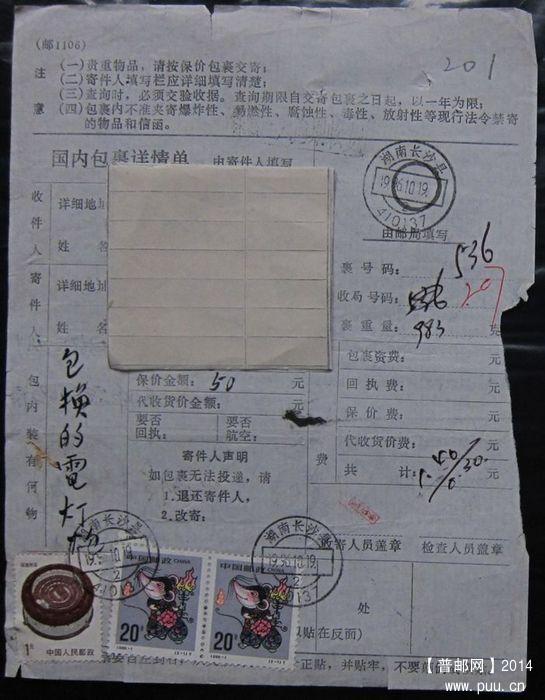 (邮1106)
201
注意
(一)贵重物品，请按保价包裹交寄；
(二)寄件人填写栏应详细填写清楚；
(三)查询时，必须交验收据。查询期限自交寄包裹之日起，以一年为限；
(四)包裹内不准夹寄爆炸性、易燃性、腐蚀性、毒性、放射性等现行法令禁寄的物品和信函。
国内包裹详情单 由寄件人填写
湖南长沙县
1996.10.19.
410137
由邮局填写
收件人
详细地
姓
寄件人
详细地址
姓
裹号码：
536
收局号码：
207
裹重量：
983
克
包内装有何物
包换的電灯
保价金额：50元
代收货价金额：元
要否回执：
要否航空：
寄件人声明
如包裹无法投递，请
1.退还寄件人，
2.改寄：
费
包裹资费：元
回执费：元
保价费：元
代收货价费：元
共计：元
湖南长沙县
湖南长沙县
1996.10.19.
2
收寄人员盖章
检查人员盖章
1分
中国人民邮政
中国邮政
CHINA
20分
中国邮政
CHINA
20分
处
贴在反面)
正贴，并贴牢，不要
【普邮网】2014
www.puu.cn